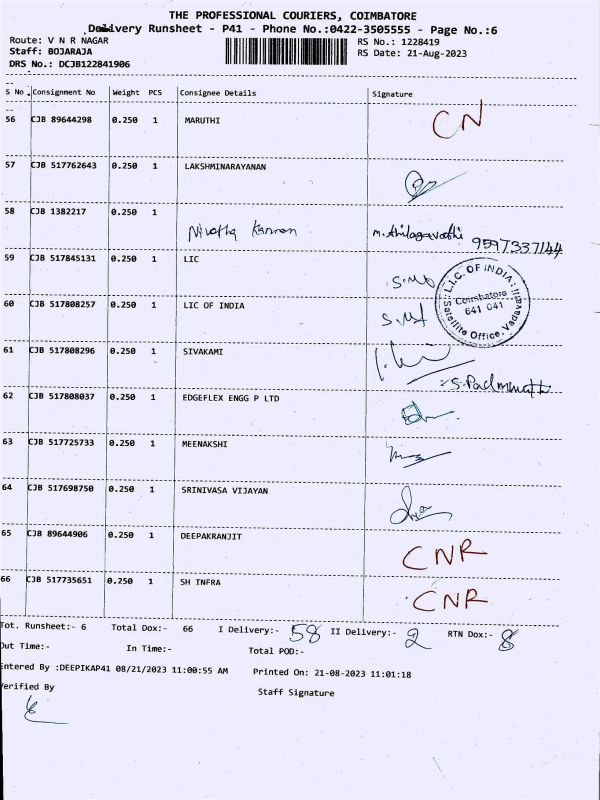 THE PROFESSIONAL COURIERS, COIMBATORE
Delivery Runsheet - P41 - Phone No.:0422-3505555 - Page No.:6
Route: V N R NAGAR
RS No.: 1228419
Staff: BOJARAJA
RS Date: 21-Aug-2023
DRS No.: DCJB122841906
S No Consignment No Weight PCS Consignee Details Signature
56 CJB 89644298 0.250 1 MARUTHI CN
57 CJB 517762643 0.250 1 LAKSHMINARAYANAN
58 CJB 1382217 0.250 1
Nivetha Kannan M. Thilagavathi 9597337144
59 CJB 517845131 0.250 1 LIC
L.I.C. OF INDIA
Coimbatore
641 041
Satellite Office, Vadavalli
60 CJB 517808257 0.250 1 LIC OF INDIA
61 CJB 517808296 0.250 1 SIVAKAMI
62 CJB 517808037 0.250 1 EDGEFLEX ENGG P LTD
63 CJB 517725733 0.250 1 MEENAKSHI
64 CJB 517698750 0.250 1 SRINIVASA VIJAYAN
65 CJB 89644906 0.250 1 DEEPAKRANJIT CNR
66 CJB 517735651 0.250 1 SH INFRA CNR
Tot. Runsheet:- 6 Total Dox:- 66 I Delivery:- 58 II Delivery:- 2 RTN Dox:- 8
Out Time:- In Time:- Total POD:-
Entered By :DEEPIKAP41 08/21/2023 11:00:55 AM Printed On: 21-08-2023 11:01:18
Verified By Staff Signature